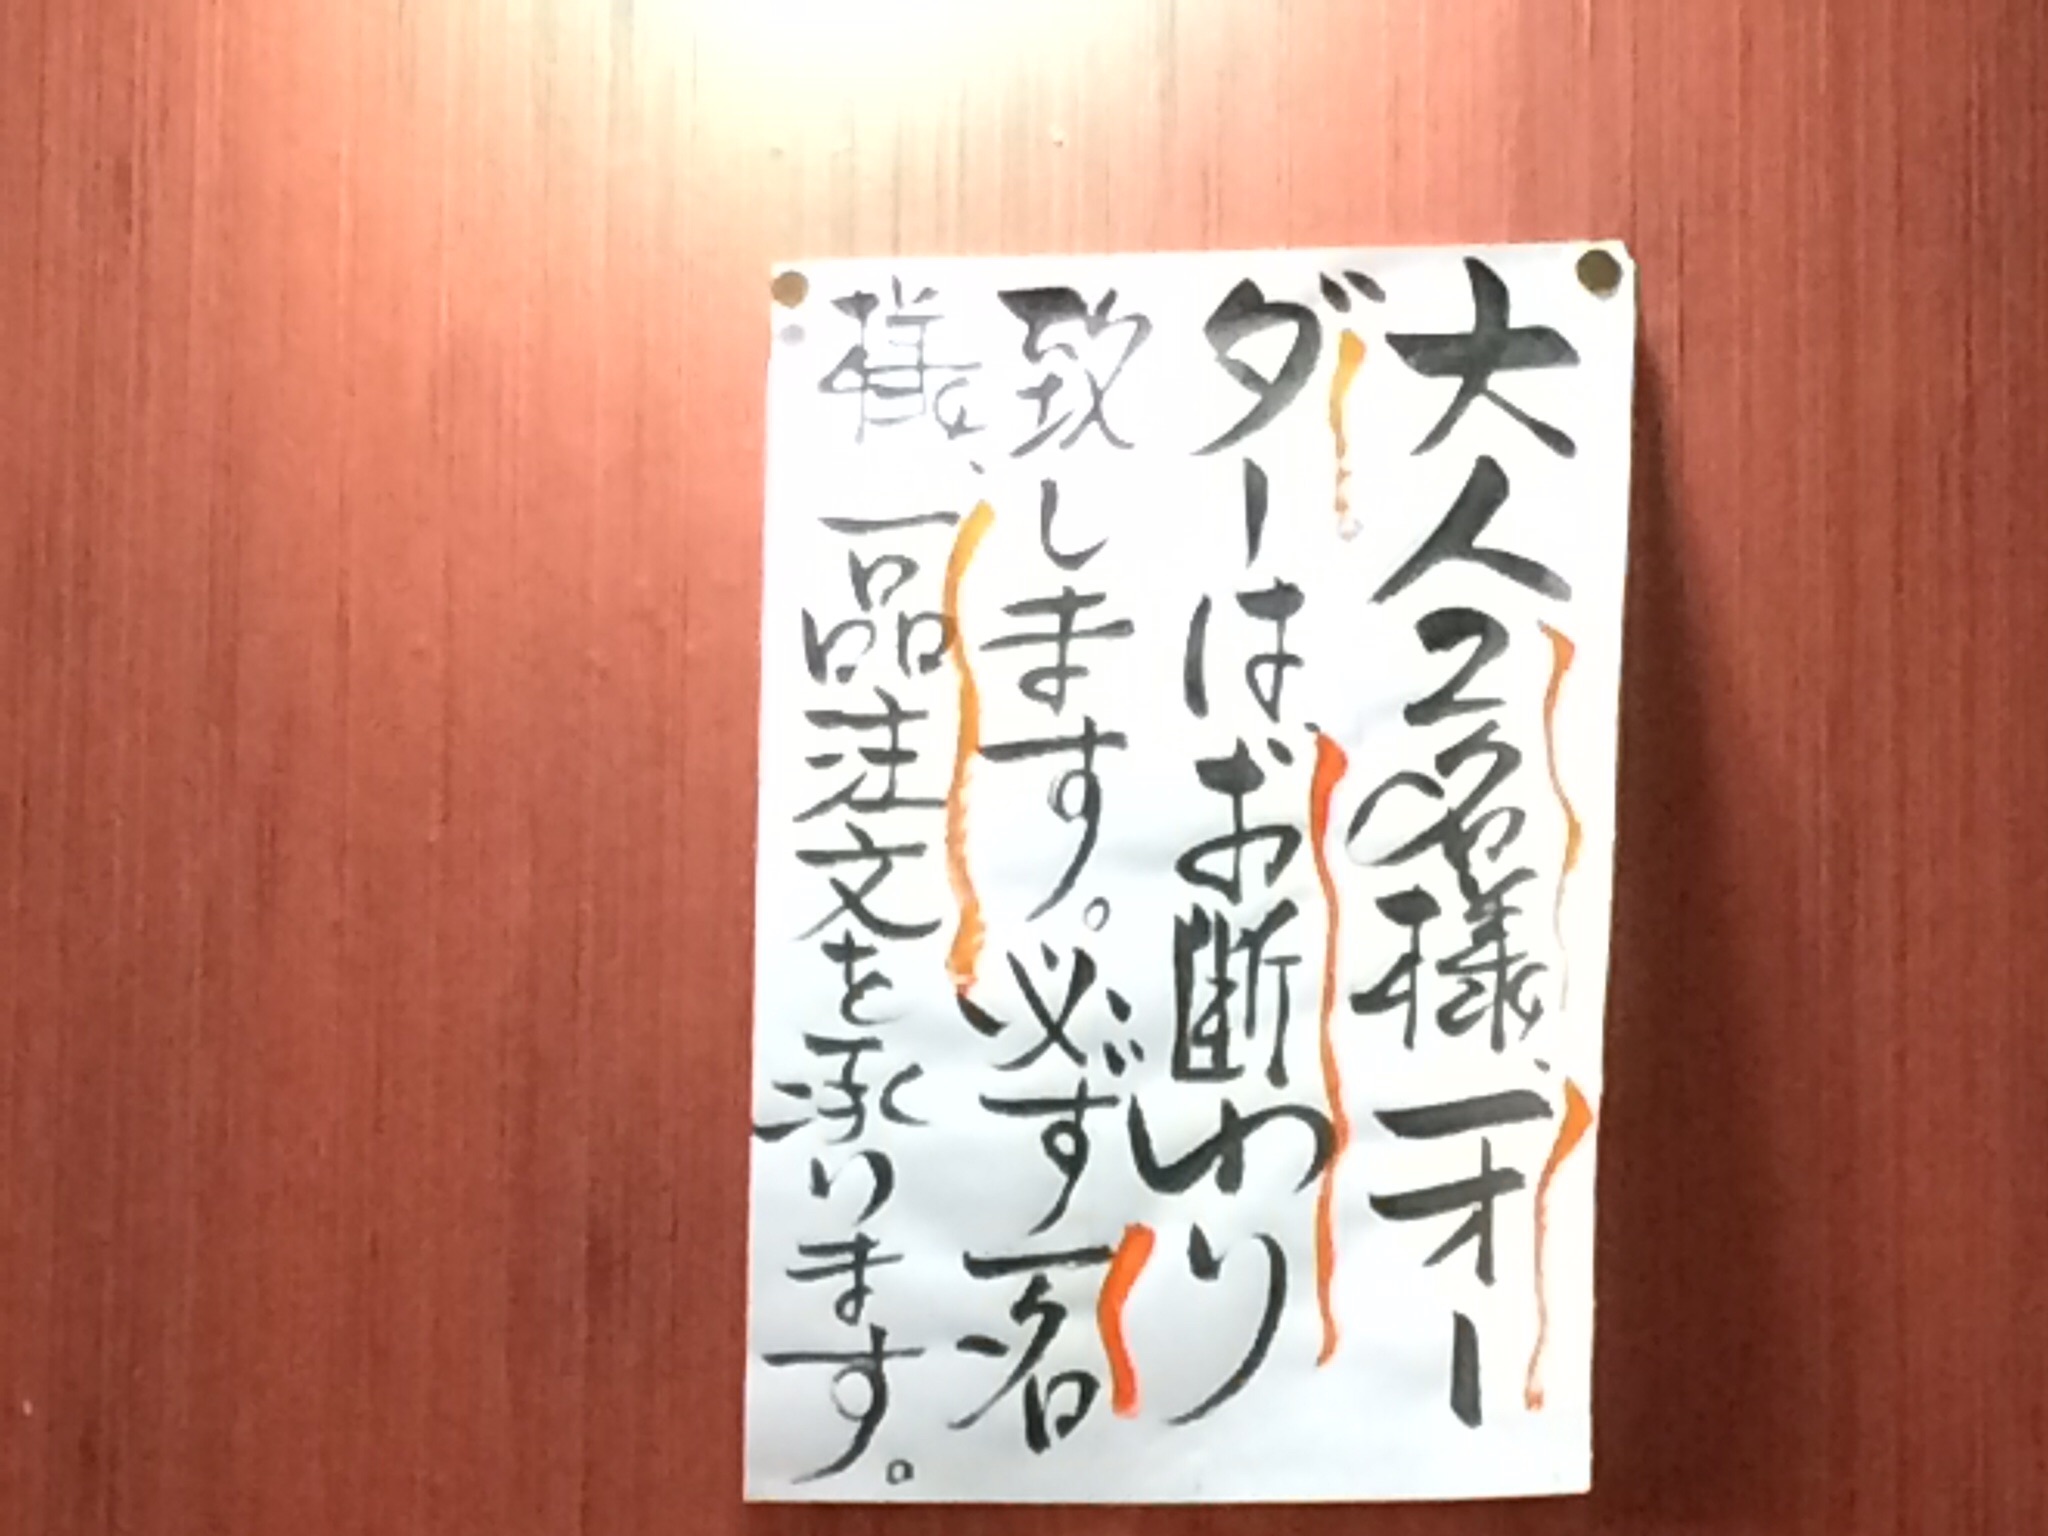 大人2名様、一オー
ダーは、お断わり
致します。必ず一名
様、一品注文を承ります。